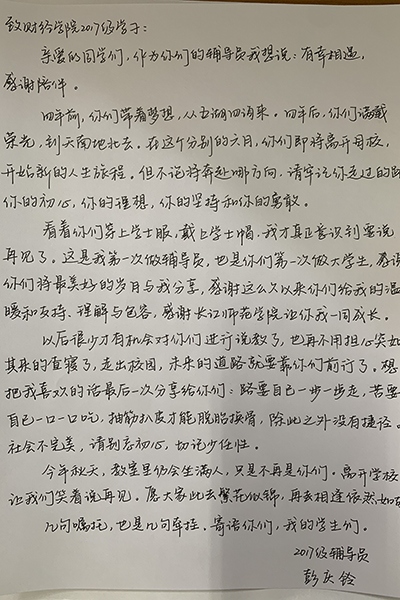 致财经学院2017级学子：
亲爱的同学们，作为你们的辅导员我想说：有幸相遇，
感谢陪伴。
四年前，你们带着梦想，从五湖四海来。四年后，你们满载
荣光，到天南地北去。在这个分别的六月，你们即将离开母校，
开始新的人生旅程。但不论将奔赴哪方向，请牢记你走过的路
你的初心，你的理想，你的坚持和你的勇敢。
看着你们穿上学士服，戴上学士帽，我才真正意识到要说
再见了。这是我第一次做辅导员，也是你们第一次做大学生，感谢
你们将最美好的岁月与我分享，感谢这么久以来你们给我的温
暖和支持、理解与包容，感谢长江师范学院让你我一同成长。
以后很少才有机会对你们进行说教了，也再不用担心突如
其来的查寝了，走出校园，未来的道路就要靠你们前行了。想
把我喜欢的话最后一次分享给你们：路要自己一步一步走，苦要
自己一口一口吃，抽筋扒皮才能脱胎换骨，除此之外没有捷径。
社会不完美，请别忘初心，切记少任性。
今年秋天，教室里仍会坐满人，只是不再是你们。离开学校
让我们笑着说再见。愿大家此去繁花似锦，再去相逢依然如故
几句嘱托，也是几句牵挂。寄语你们，我的学生们。
2017级辅导员
彭庆铃